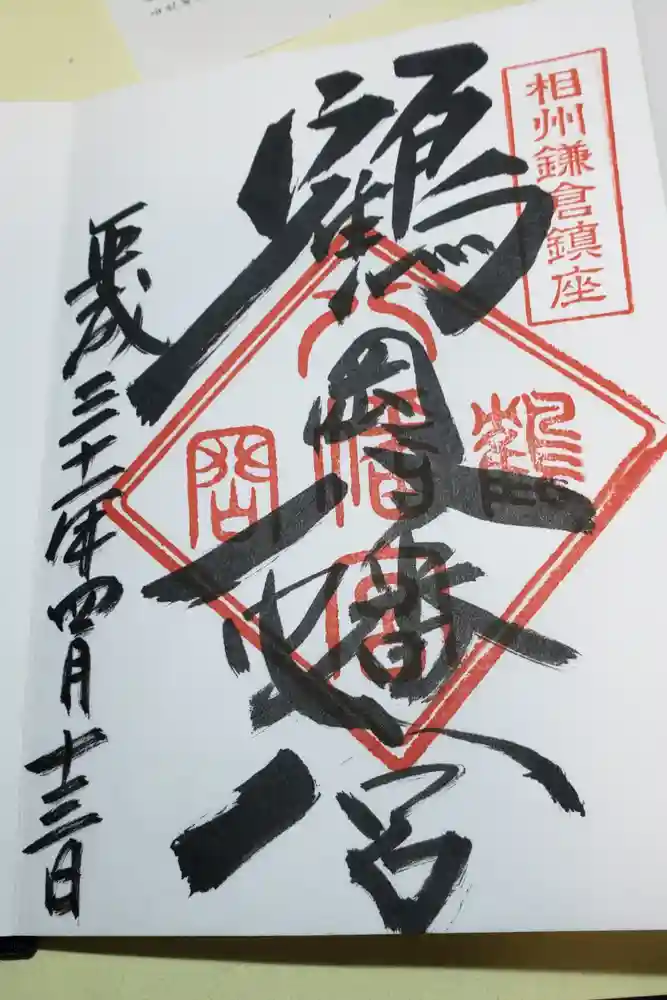 相州鎌倉鎮座
鶴岡八幡宮
鶴
八幡宮
岡
平成三十一年四月十三日